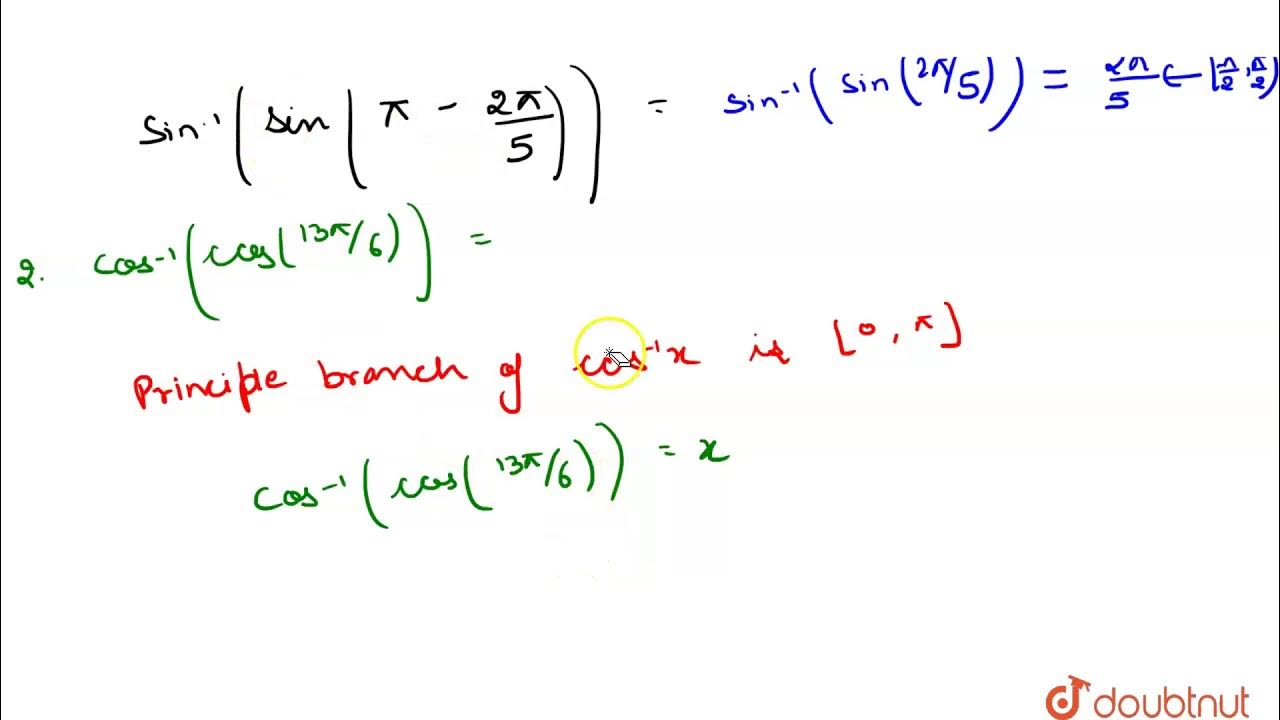 sin⁻¹(sin(π - 2π/5)) = sin⁻¹(sin(2π/5)) = 2π/5 ∈ [π/2, π/2)
2. cos⁻¹(cos(13π/6)) =
Principle branch of cos⁻¹x is [0, π]
cos⁻¹(cos(13π/6)) = x
doubtnut